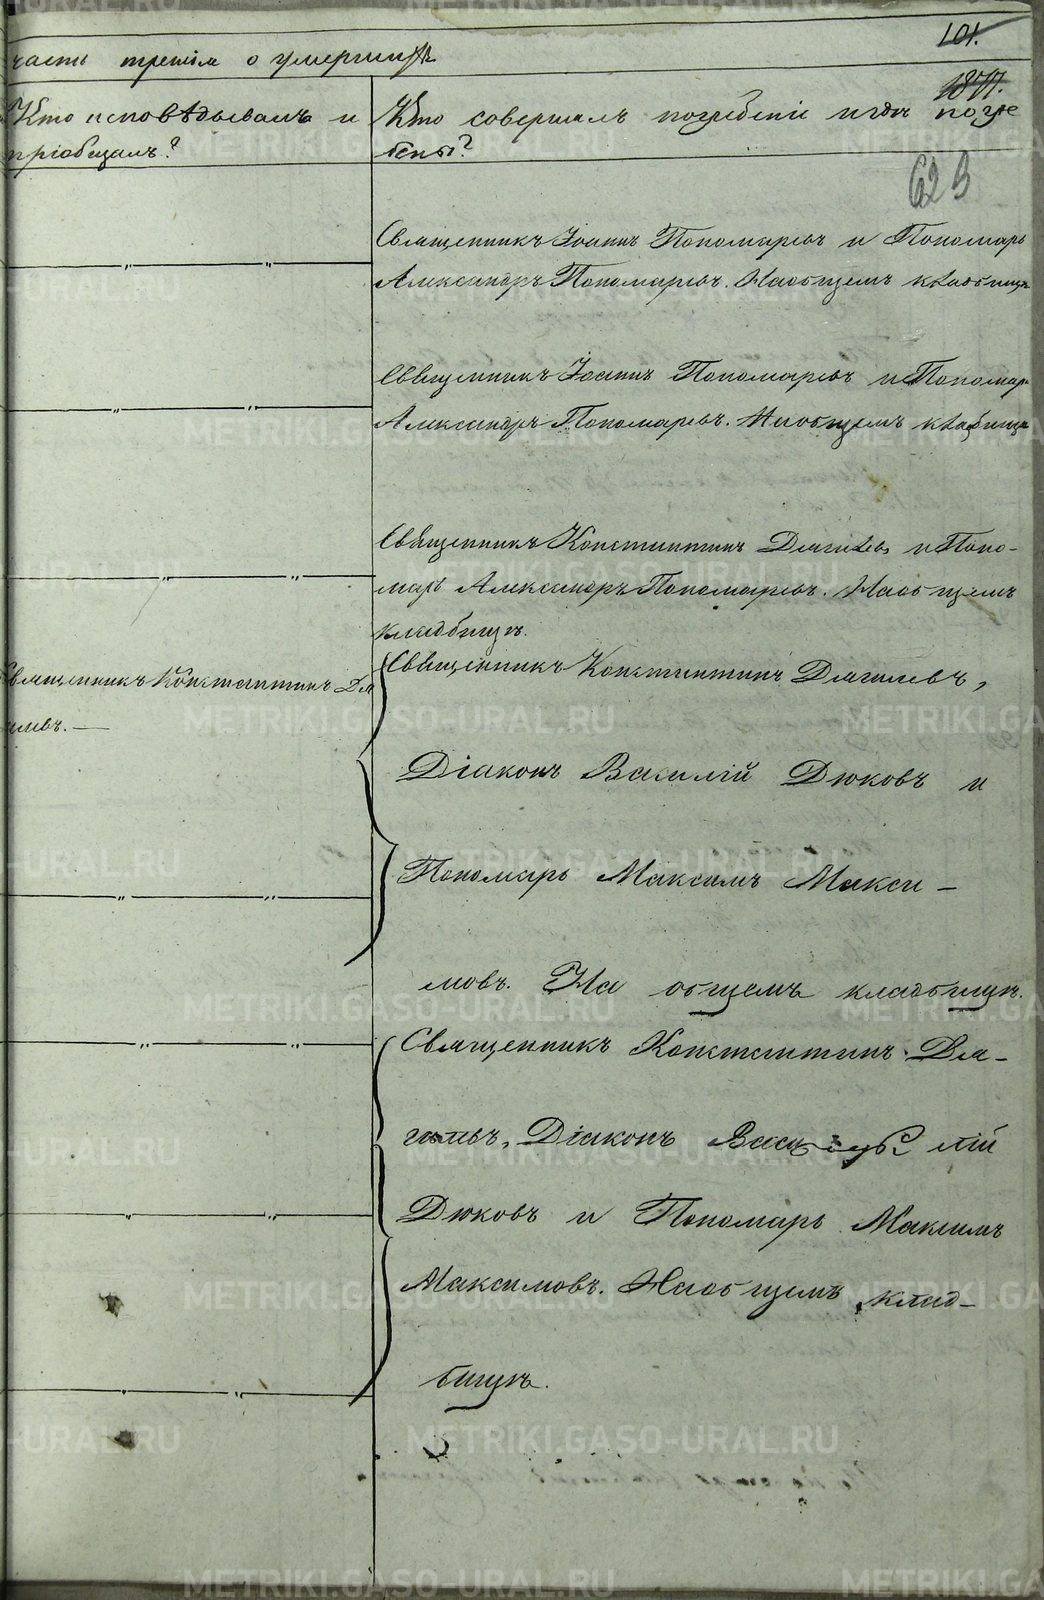 101.
часть третія о умершихъ
187
Кто исповѣдывалъ и
пріобщалъ?
Кто совершалъ погребеніе и гдѣ погре
бены?
623
Священникъ Іоаннъ Пономаревъ и Пономарь
Александръ Пономаревъ. На общемъ кладбищѣ
Священникъ Іоаннъ Пономаревъ и Пономарь
Александръ Пономаревъ. На общемъ кладбищѣ
Священникъ Константинъ Дягилевъ и Поно-
марь Александръ Пономаревъ. На общемъ
кладбищѣ.
Священникъ Константинъ Дя
гилевъ. —
Священникъ Константинъ Дягилевъ,
Діаконъ Василій Дюковъ и
Пономарь Максимъ Макси-
мовъ. На общемъ кладбищѣ.
Священникъ Константинъ Дя-
гилевъ, Діаконъ Василій
Дюковъ и Пономарь Максимъ
Максимовъ. На общемъ клад-
бищѣ.
METRIKI.GASO-URAL.RU